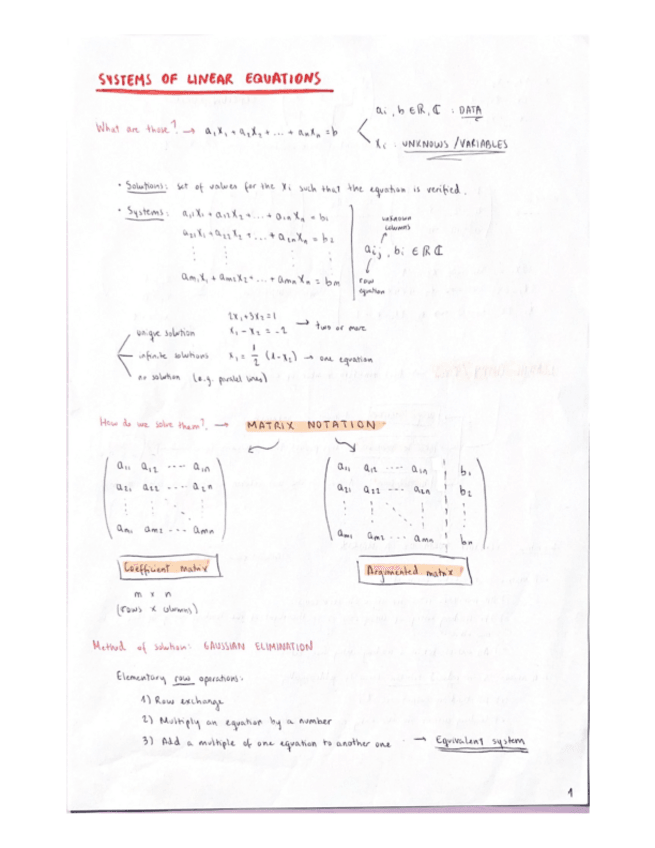 SYSTEMS OF LINEAR EQUATIONS
What are those? → a₁x₁ + a₂x₂ + ... + aₙxₙ = b
aᵢ, b ∈ ℝ, ℂ : DATA
xᵢ : UNKNOWS / VARIABLES
• Solutions: set of values for the xᵢ such that the equation is verified.
• Systems: a₁₁x₁ + a₁₂x₂ + ... + a₁ₙxₙ = b₁
a₂₁x₁ + a₂₂x₂ + ... + a₂ₙxₙ = b₂
⋮ ⋮ ⋮ ⋮
aₘ₁x₁ + aₘ₂x₂ + ... + aₘₙxₙ = bₘ
unknown
columns
aᵢⱼ, bᵢ ∈ ℝ ℂ
row
equation
unique solution 2x₁+3x₂=1
x₁ - x₂ = -2 → two or more
infinite solutions x₁ = 1/2 (1-x₂) → one equation
no solution (e.g. paralel lines)
How do we solve them? → MATRIX NOTATION
a₁₁ a₁₂ ---- a₁ₙ
a₂₁ a₂₂ ---- a₂ₙ
⋮ ⋮ ⋱ ⋮
aₘ₁ aₘ₂ --- aₘₙ
Coefficient matrix
m x n
(rows x columns)
a₁₁ a₁₂ ---- a₁ₙ ¦ b₁
a₂₁ a₂₂ --- a₂ₙ ¦ b₂
⋮ ⋮ ⋱ ⋮ ¦ ⋮
aₘ₁ aₘ₂ --- aₘₙ ¦ bₙ
Argumented matrix
Method of solution: GAUSSIAN ELIMINATION
Elementary row operations:
1) Row exchange
2) Multiply an equation by a number
3) Add a multiple of one equation to another one → Equivalent system
1